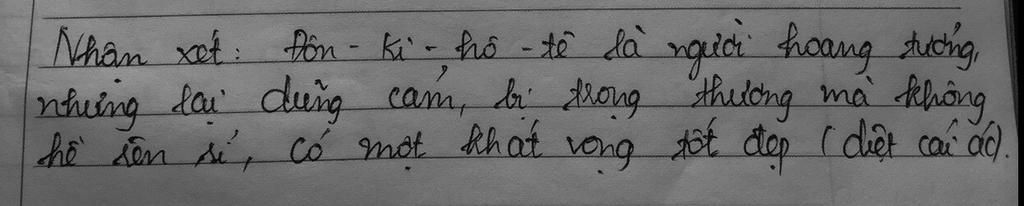 Nhận xét: Đôn-ki-hô-tê là người hoang tưởng,
nhưng lại dũng cảm, bị trọng thương mà không
hề rên rỉ, có một khát vọng tốt đẹp (diệt cái ác).